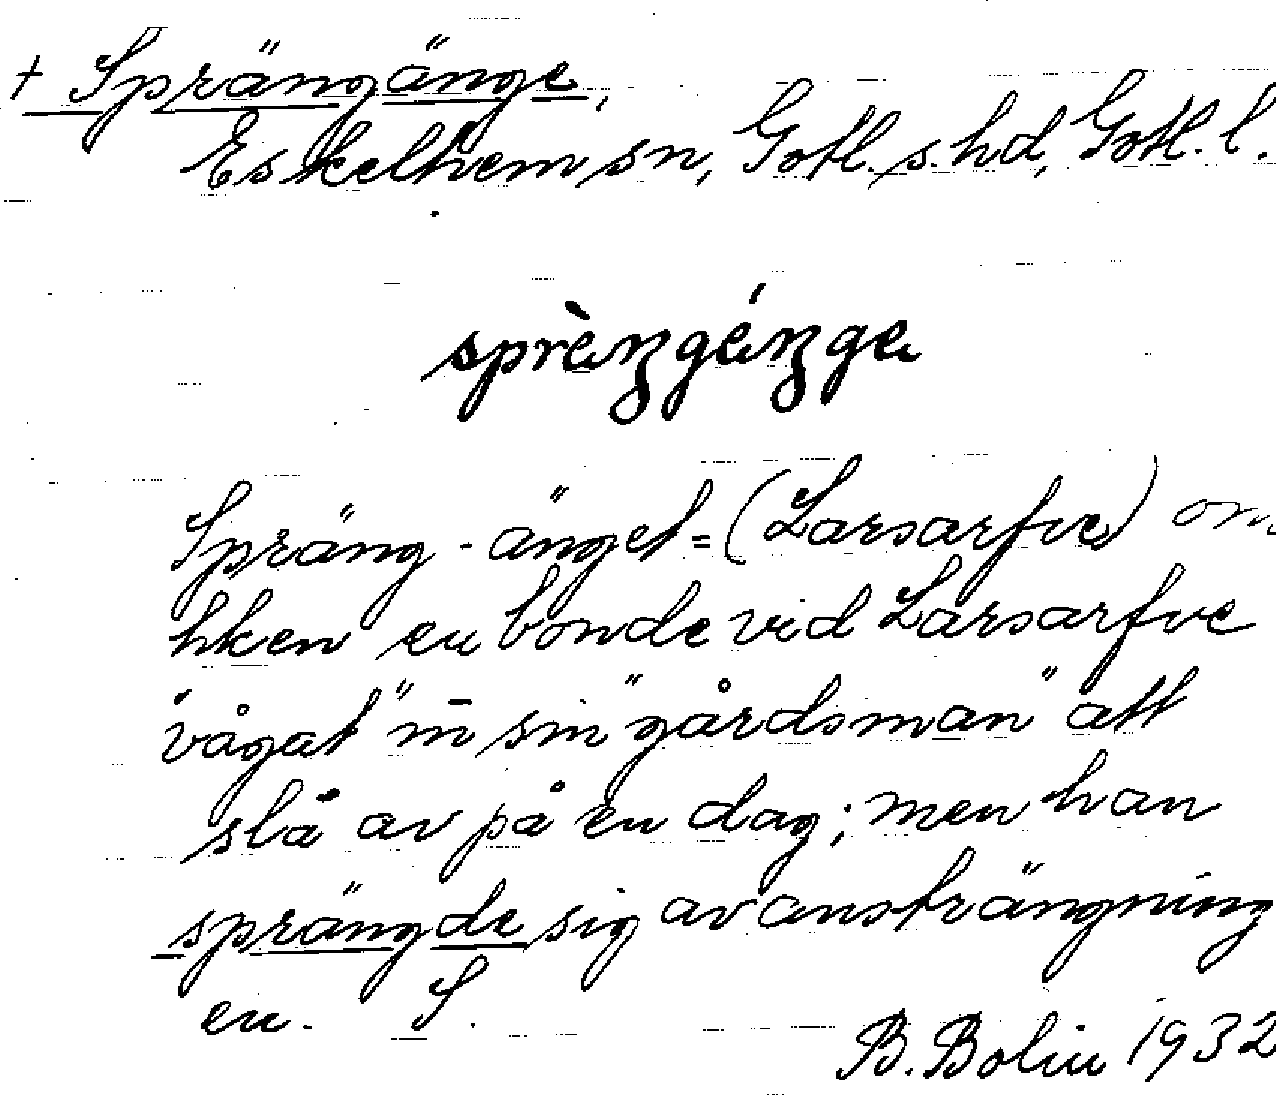 + Sprängänge,
Eskelhem sn, Gotl. s. hd, Gotl. l.
sprèŋgéŋge
Spräng-änget = (Larsarfve) om
hken en bonde vid Larsarfve
"vågat" m̄ sin "gårdsman" att
slå av på en dag; men han
sprängde sig av ansträngning
en. S.
B. Bolin 1932